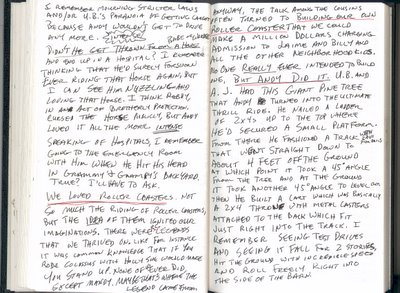 I REMEMBER MOURNING STRICTER LAWS
AND/OR U.B.'S PARANOIA OF GETTING CAUGHT
BECAUSE ANDY WOULDN'T GET TO ROAM
ANY MORE. INTENSE
RODE MOWER
DIDN'T HE GET THROWN FROM A HORSE
AND END UP IN A HOSPITAL? I REMEMBER
THINKING THAT HE'D SURELY FORSAKEN
EVER RIDING THAT HORSE AGAIN BUT
I CAN SEE HIM NUZZLING AND
LOVING THAT HORSE. I THINK ROBBY,
IN AN ACT OF BROTHERLY PROTECTION,
CURSED THE HORSE PUBLICLY, BUT ANDY
LOVED IT ALL THE MORE. INTENSE
SPEAKING OF HOSPITALS, I REMEMBER
GOING TO THE EMERGENCY ROOM
WITH HIM WHEN HE HIT HIS HEAD
IN GRAMMY & GRAMPY'S BACKYARD.
TRUE? I'LL HAVE TO ASK.
WE LOVED ROLLER COASTERS. NOT
SO MUCH THE RIDING OF ROLLER COASTERS,
BUT THE IDEA OF THEM IGNITED OUR
IMAGINATIONS. THERE WERE LEGENDS
THAT WE THRIVED ON LIKE FOR INSTANCE
IT WAS COMMON KNOWLEDGE THAT IF YOU
RODE COLOSSUS WITH JOLLY YOU COULD MAKE
YOU STAND UP. NONE OF EVER DID
EXCEPT MANDY, MAYBE THAT'S WHERE THE
LEGEND CAME FROM.
ANYWAY, THE TALK AMONG THE COUSINS
OFTEN TURNED TO BUILDING OUR OWN
ROLLER COASTER THAT WE COULD
MAKE A MILLION DOLLARS CHARGING
ADMISSION TO JAIME AND BILLY AND
ALL THE OTHER NEIGHBORHOOD KIDS.
NO ONE REALLY EVER INTENDED TO BUILD
ONE, BUT ANDY DID IT. U.B. AND
J.J. HAD THIS GIANT PINE TREE
THAT ANDY TURNED INTO THE ULTIMATE
THRILL RIDE. HE NAILED A LADDER
OF 2X4'S UP TO THE TOP WHERE
HE'D SECURED A SMALL PLATFORM.
FROM THERE HE FASHIONED A TRACK
THAT WENT STRAIGHT DOWN TO
ABOUT 4 FEET OFF THE GROUND
AT WHICH POINT IT TOOK A 45° ANGLE
FROM THE TREE AND AT THE GROUND
IT TOOK ANOTHER 45° ANGLE TO LEVEL OFF.
THEN HE BUILT A CART WHICH WAS BASICALLY
A 2X4 WITH METAL CASTERS
ATTACHED TO THE BACK WHICH FIT
JUST RIGHT INTO THE TRACK. I
REMEMBER SEEING TEST DRIVES
AND SEEING IT FALL FOR 2 STORIES,
HIT THE GROUND WITH INCREDIBLE SPEED
AND ROLL FREELY RIGHT INTO
THE SIDE OF THE BARN